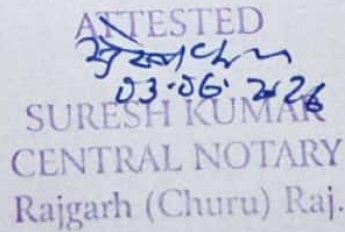 ATTESTED
03-06-2026
SURESH KUMAR
CENTRAL NOTARY
Rajgarh (Churu) Raj.